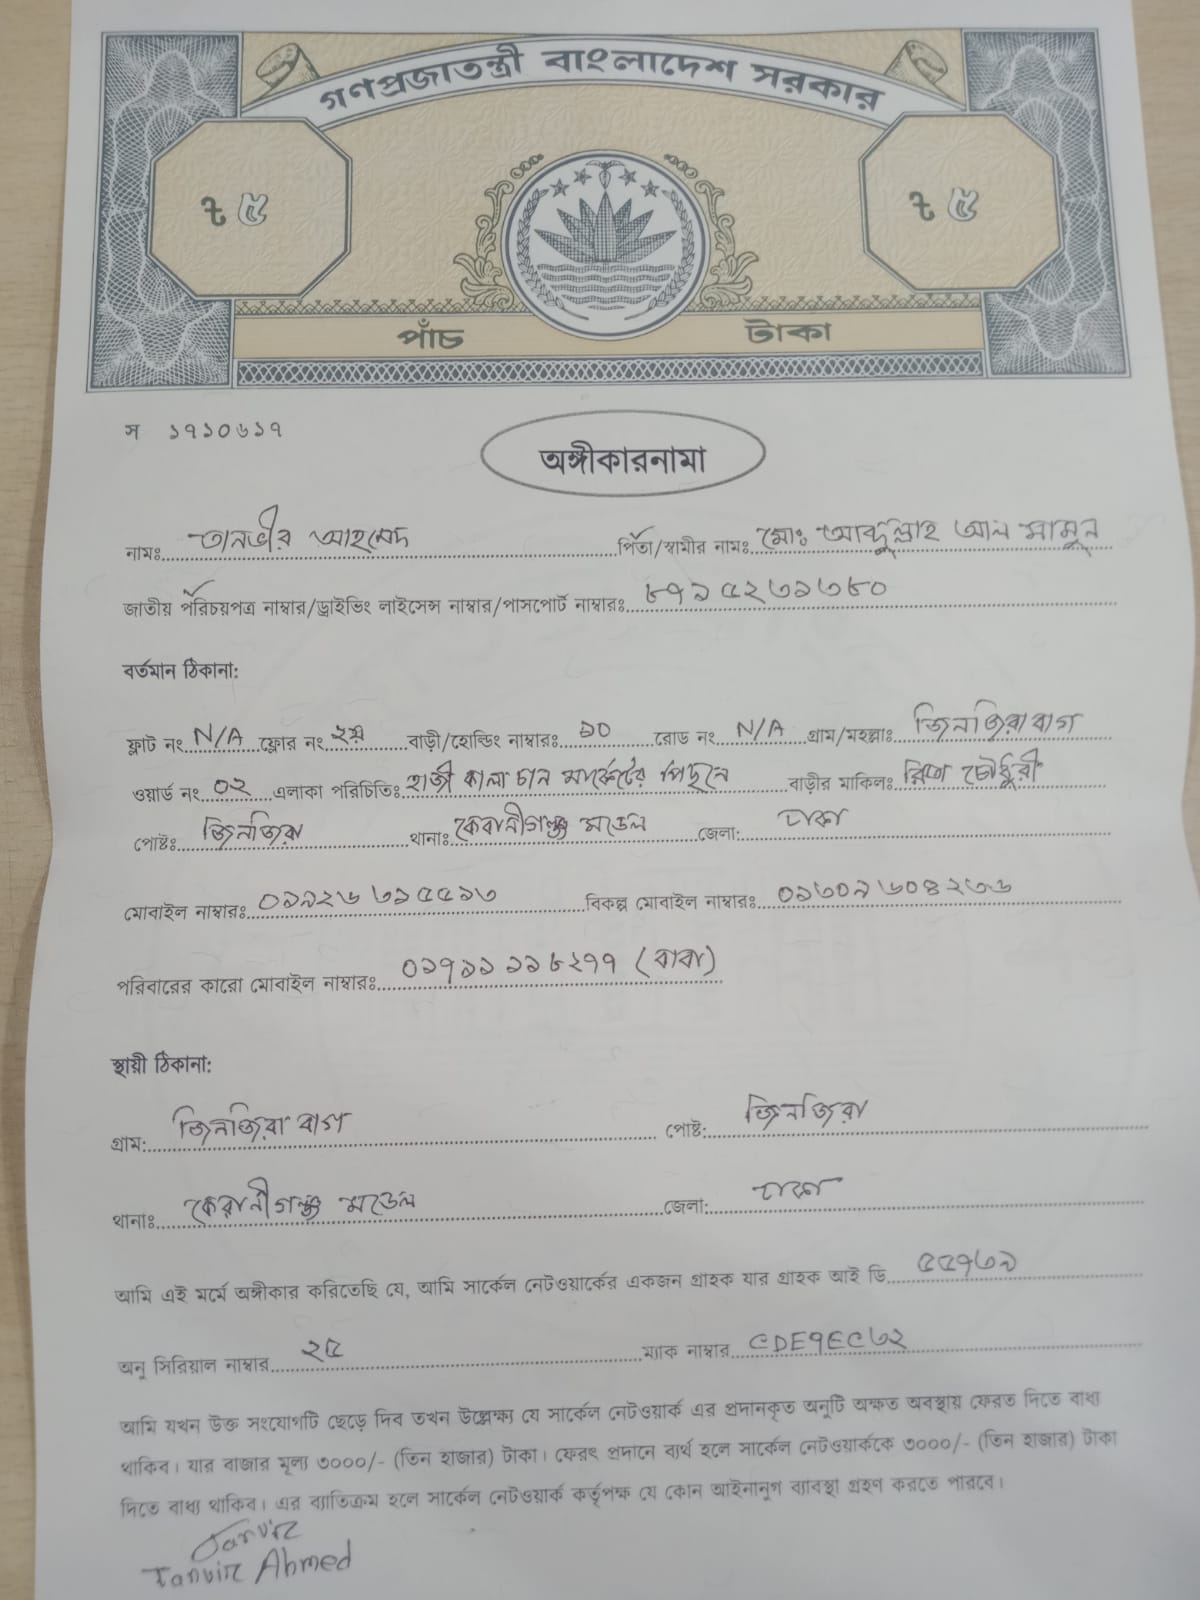 গণপ্রজাতন্ত্রী বাংলাদেশ সরকার
ট ৫ ট ৫
পাঁচ টাকা
স ১৭১০৬১৭
অঙ্গীকারনামা
নামঃ তানভীর আহমেদ পিতা/স্বামীর নামঃ মোঃ আব্দুল্লাহ আল মামুন
জাতীয় পরিচয়পত্র নাম্বার/ড্রাইভিং লাইসেন্স নাম্বার/পাসপোর্ট নাম্বারঃ ৮৭১৫২৩১৩৮০
বর্তমান ঠিকানা:
ফ্লাট নং N/A ফ্লোর নং ২য় বাড়ী/হোল্ডিং নাম্বারঃ ১০ রোড নং N/A গ্রাম/মহল্লাঃ জিনজিরাবাগ
ওয়ার্ড নং ০২ এলাকা পরিচিতিঃ হাজী কালা চান মার্কেটের পিছনে বাড়ীর মাকিলঃ চৌধুরী
পোষ্টঃ জিনজিরা থানাঃ কেরানীগঞ্জ মডেল জেলা: ঢাকা
মোবাইল নাম্বারঃ ০১৯২৬৩১৫৫১৩ বিকল্প মোবাইল নাম্বারঃ
পরিবারের কারো মোবাইল নাম্বারঃ ০১৭১১১১৮২৭৭ (বাবা)
স্থায়ী ঠিকানা:
গ্রাম: জিনজিরা বাগ পোষ্ট: জিনজিরা
থানাঃ কেরানীগঞ্জ মডেল জেলা: ঢাকা
আমি এই মর্মে অঙ্গীকার করিতেছি যে, আমি সার্কেল নেটওয়ার্কের একজন গ্রাহক যার গ্রাহক আই ডি ৫৫৭৩৯
অনু সিরিয়াল নাম্বার ২৫ ম্যাক নাম্বার
আমি যখন উক্ত সংযোগটি ছেড়ে দিব তখন উল্লেক্ষ্য যে সার্কেল নেটওয়ার্ক এর প্রদানকৃত অনুটি অক্ষত অবস্থায় ফেরত দিতে বাধ্য
থাকিব। যার বাজার মূল্য ৩০০০/- (তিন হাজার) টাকা। ফেরৎ প্রদানে ব্যর্থ হলে সার্কেল নেটওয়ার্ককে ৩০০০/- (তিন হাজার) টাকা
দিতে বাধ্য থাকিব। এর ব্যাতিক্রম হলে সার্কেল নেটওয়ার্ক কর্তৃপক্ষ যে কোন আইনানুগ ব্যাবস্থা গ্রহণ করতে পারবে।
Tanvir
Tanvir Ahmed